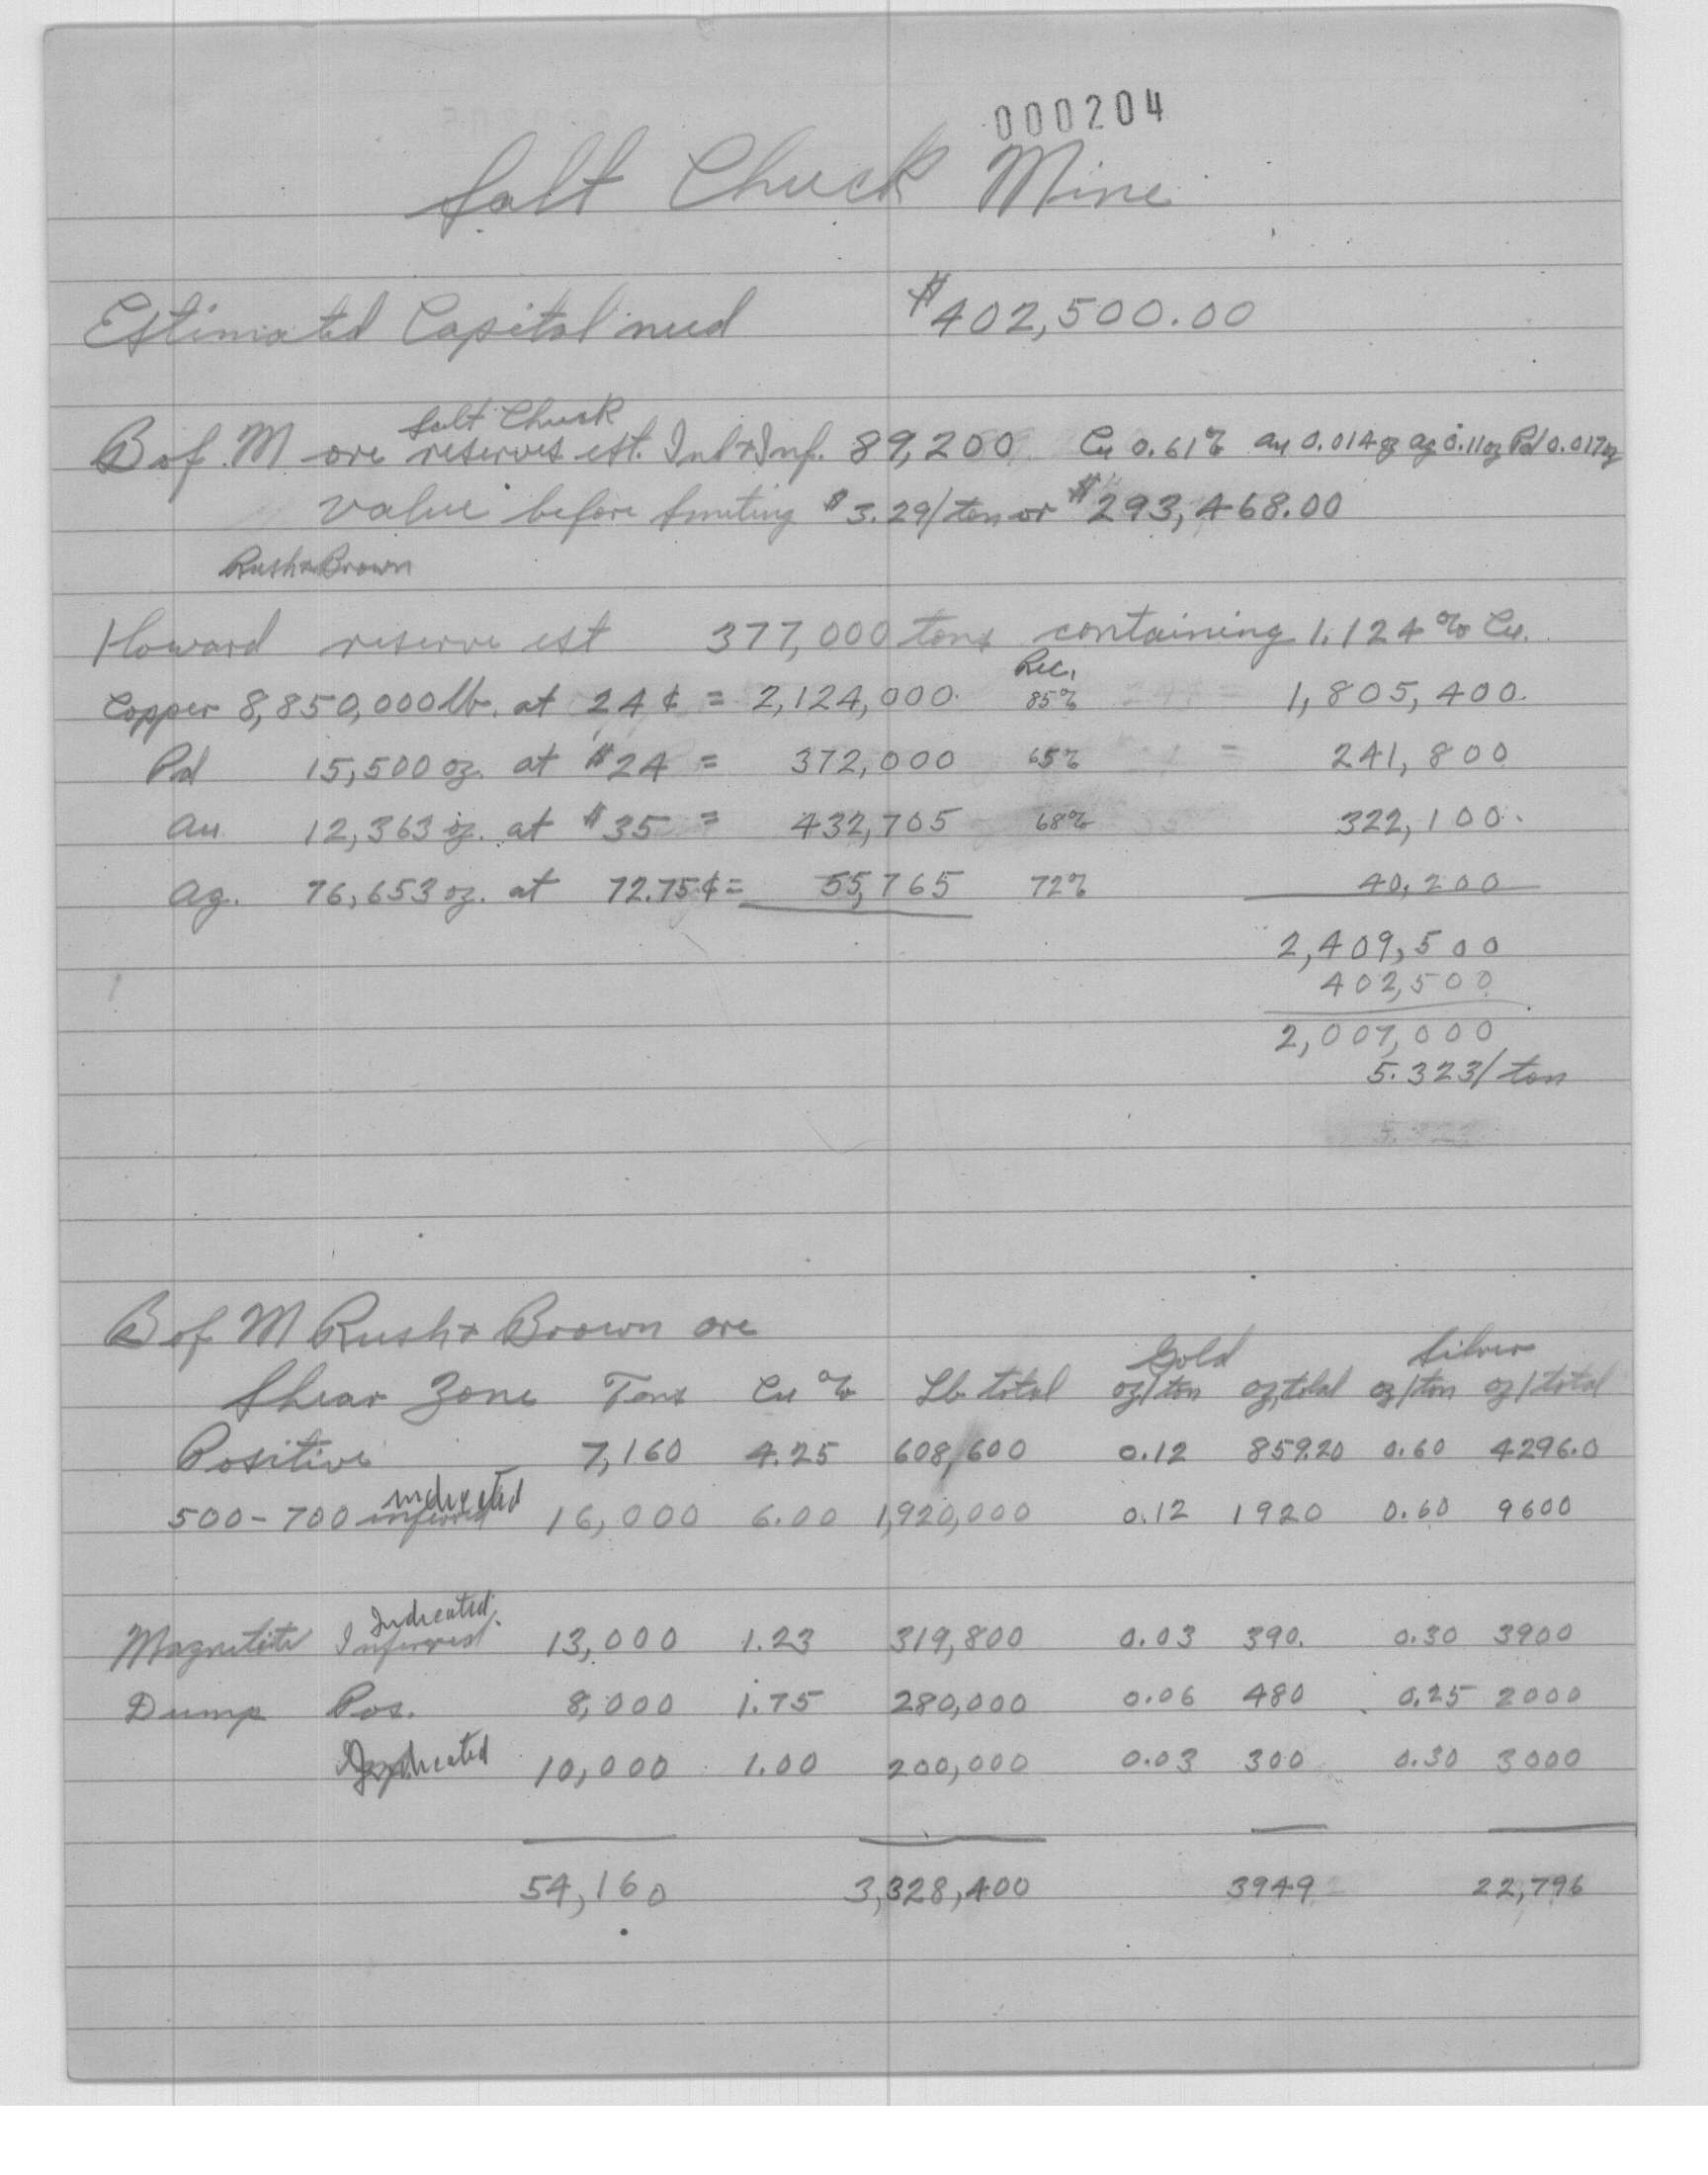 000204
Salt Chuck Mine
Estimated Capital need $402,500.00
Salt Chuck
B of M ore reserves est. Ind & Inf. 89,200 Cu 0.61% Au 0.014 oz Ag 0.11 oz Pd 0.017 oz
value before smelting $3.29/ton or $293,468.00
Rush & Brown
Howard reserve est 377,000 tons containing 1.124% Cu.
Rec.
Copper 8,850,000 lb. at 24¢ = 2,124,000 85% 1,805,400.
Pd 15,500 oz. at $24 = 372,000 65% = 241,800
Au 12,363 oz. at $35 = 432,705 68% 322,100.
Ag. 76,653 oz. at 72.75¢ = 55,765 72% 40,200
2,409,500
402,500
2,007,000
5.323/ton
B of M Rush & Brown ore
Gold Silver
Shear Zone Tons Cu % Lb total oz/ton oz, total oz/ton oz/total
Positive 7,160 4.25 608,600 0.12 859.20 0.60 4296.0
indicated
500-700 inferred 16,000 6.00 1,920,000 0.12 1920 0.60 9600
Indicated
Magnetite Inferred 13,000 1.23 319,800 0.03 390. 0.30 3900
Dump Pos. 8,000 1.75 280,000 0.06 480 0.25 2000
Indicated 10,000 1.00 200,000 0.03 300 0.30 3000
54,160 3,328,400 3949 22,796